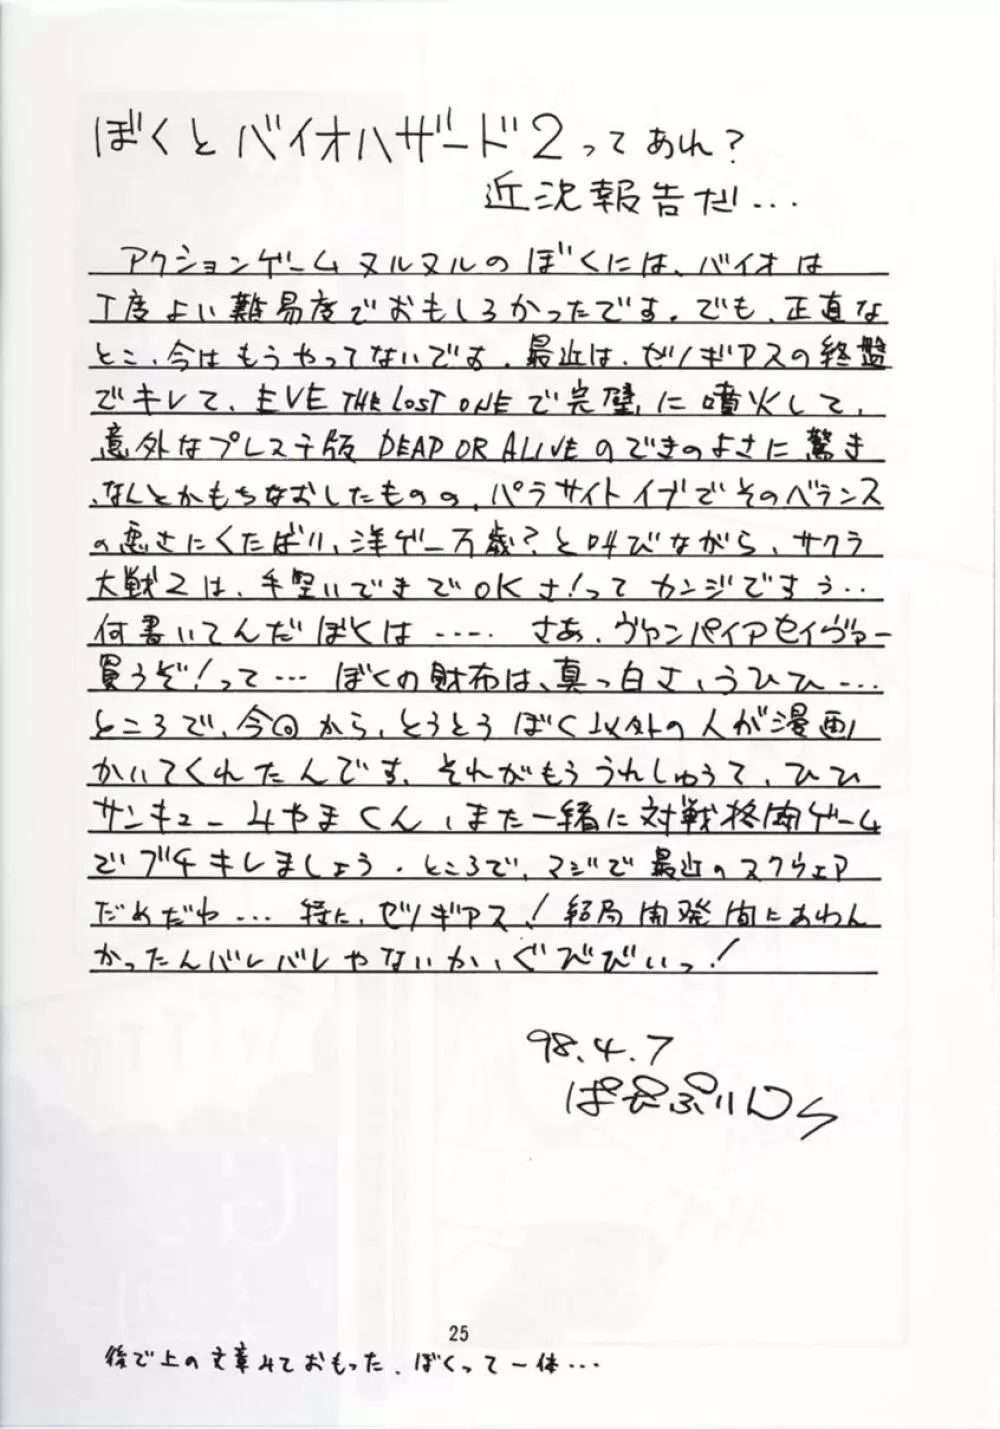 ぼくとバイオハザード2ってあれ?
近況報告だ...
アクションゲームヌルヌルのぼくには、バイオは
丁度よい難易度でおもしろかったです。でも、正直な
とこ、今はもうやってないです。最近は、ゼノギアスの終盤
でキレて、EVE THE LOST ONEで完璧に噴火して、
意外なプレステ版DEAD OR ALIVEのできのよさに驚き
、なんとかもちなおしたものの、パラサイトイブでそのベランス
の悪さにくたばり、洋ゲー万歳?と叫びながら、サクラ
大戦2は、手堅いできでOKさ!ってカンジですぅ..
何書いてんだぼくは..... さあ、ヴァンパイアセイヴァー
買うぞ!って... ぼくの財布は、真っ白さ、うひひ...
ところで、今回から、とうとうぼく以外の人が漫画
かいてくれたんです。それがもううれしゅうて、ひひ
サンキューみやまくん、また一緒に対戦格闘ゲーム
でブチキレましょう。ところで、マジで最近のスクウェア
だめだわ... 特に、ゼノギアス!結局開発間にあわん
かったんバレバレやないか、ぐびびぃっ!
98.4.7
25
後で上の文章みておもった、ぼくって一体...